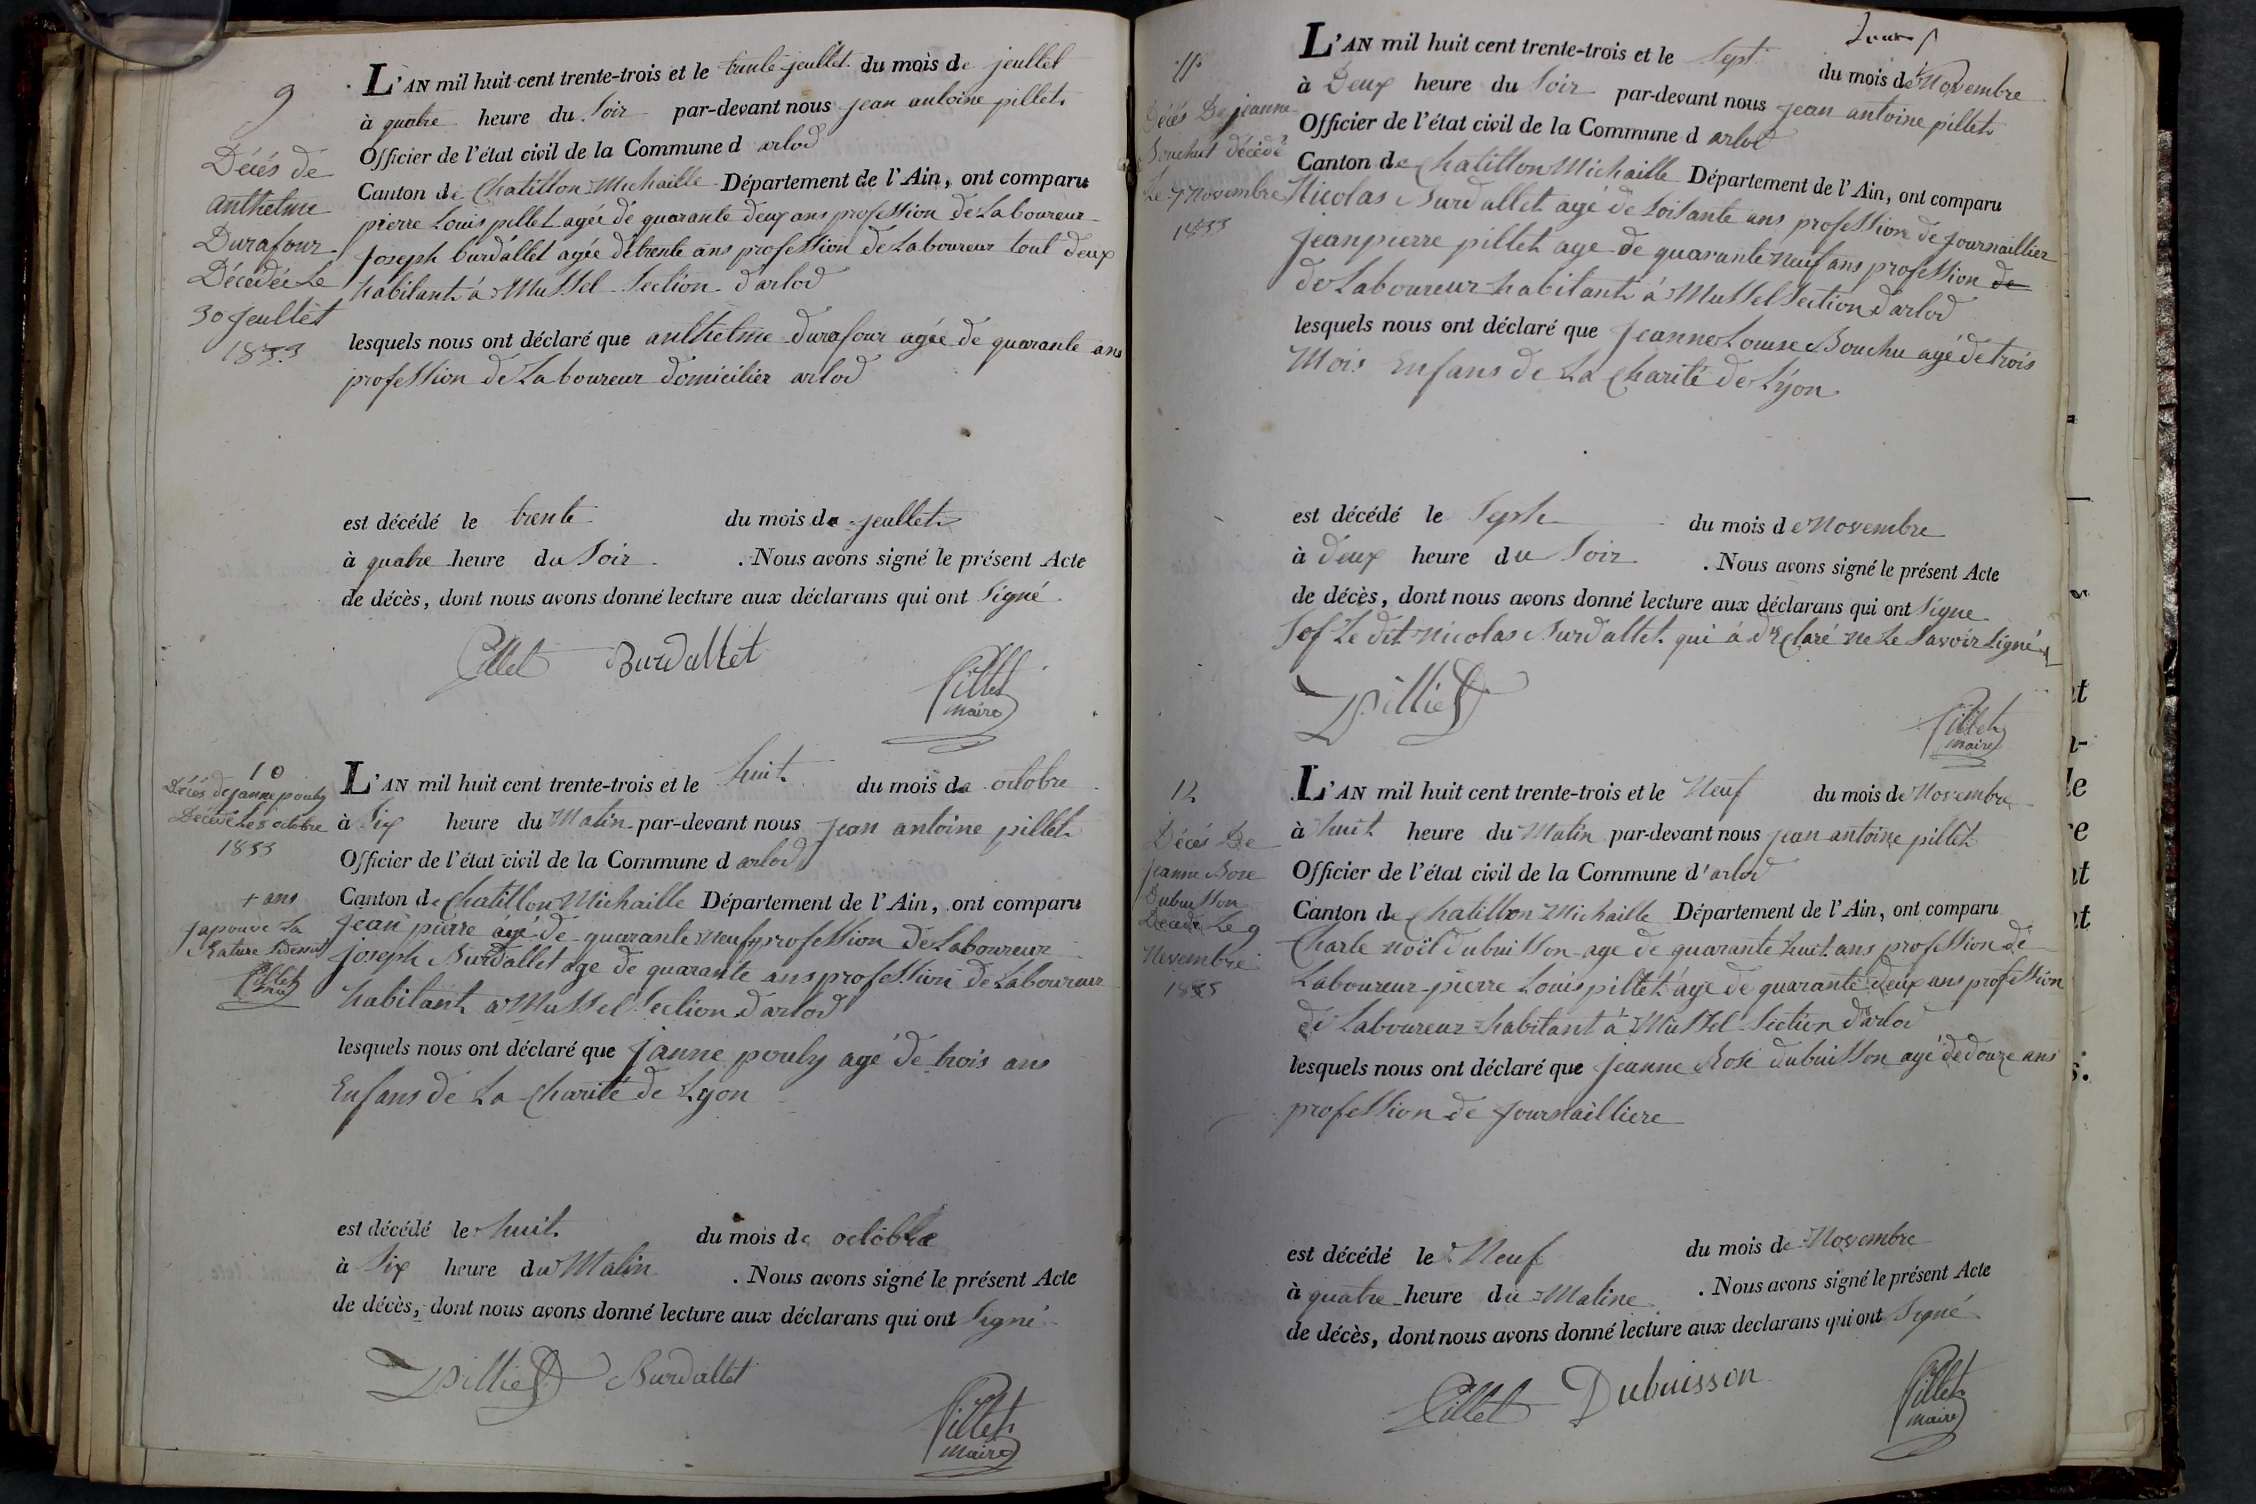 9
Décés de
anthelme
Durafour
Décédée Le
30 jeullet
1833
L'AN mil huit cent trente-trois et le trente jeullet du mois de jeullet
à quatre heure du Soir par-devant nous jean antoine pillet
Officier de l'état civil de la Commune d arlod
Canton de Chatillon Michaille Département de l'Ain, ont comparu
pierre Louis pillet agée de quarante deux ans profession de Laboureur
joseph burdallet agée de trente ans profession de Laboureur tout deux
habitant à Mussel Section d'arlod
lesquels nous ont déclaré que anthelme durafour agée de quarante ans
profession de Laboureur domicilier arlod
est décédé le trente du mois de jeullet
à quatre heure du Soir . Nous avons signé le présent Acte
de décès, dont nous avons donné lecture aux déclarans qui ont Signé
Pillet Burdallet
Pillet
maire
10
Décés de janne pouly
Décédé Le 8 octobre
1833
+ ans
japouve La
Rature Dessus
Pillet
L'AN mil huit cent trente-trois et le huit du mois de octobre
à Six heure du Matin par-devant nous jean antoine pillet
Officier de l'état civil de la Commune d arlod
Canton de Chatillon Michaille Département de l'Ain, ont comparu
jean pierre agé de quarante neuf + profession de Laboureur
joseph Burdallet age de quarante ans profession de Laboureur
habitant a Mussel Section d'arlod
lesquels nous ont déclaré que janne pouly agé de trois ans
Enfans de La Charité de Lyon
est décédé le huit du mois de octobre
à Six heure du Matin . Nous avons signé le présent Acte
de décès, dont nous avons donné lecture aux déclarans qui ont Signé
JPilliet Burdallet
Pillet
maire
11
Décés De jeanne
Bouchut décédé
Le 7 novembre
1833
L'AN mil huit cent trente-trois et le Sept du mois de Novembre
à Deux heure du Soir par-devant nous jean antoine pillet
Officier de l'état civil de la Commune d arlod
Canton de Chatillon Michaille Département de l'Ain, ont comparu
Nicolas Burdallet agé de Soisante ans profession de journaillier
jeanpierre pillet age de quarante neuf ans profession de
de Laboureur habitant à Mussel Section d'arlod
lesquels nous ont déclaré que jeanne Louise Bouchu agé de trois
Mois Enfans de La Charité de Lyon
est décédé le Septe du mois de Novembre
à deux heure du Soir . Nous avons signé le présent Acte
de décès, dont nous avons donné lecture aux déclarans qui ont Signe
Sof Le dit Nicolas Burdallet qui à déclaré ne Le Savoir Signé
JPilliet
Pillet
maire
12
Décés De
jeanne Rose
Dubuisson
Décédé Le 9
Novembre
1833
L'AN mil huit cent trente-trois et le Neuf du mois de Novembre
à huit heure du Matin par-devant nous jean antoine pillet
Officier de l'état civil de la Commune d'arlod
Canton de Chatillon Michaille Département de l'Ain, ont comparu
Charle noël dubuisson age de quarante huit ans profession de
Laboureur pierre Louis pillet age de quarante deux ans profession
de Laboureur habitant à Mussel Section d'arlod
lesquels nous ont déclaré que jeanne Rose dubuisson agé de douze ans
profession de journailliere
est décédé le Neuf du mois de Novembre
à quatre heure du Matine . Nous avons signé le présent Acte
de décès, dont nous avons donné lecture aux declarans qui ont Signé
Pillet Dubuisson
Pillet
maire